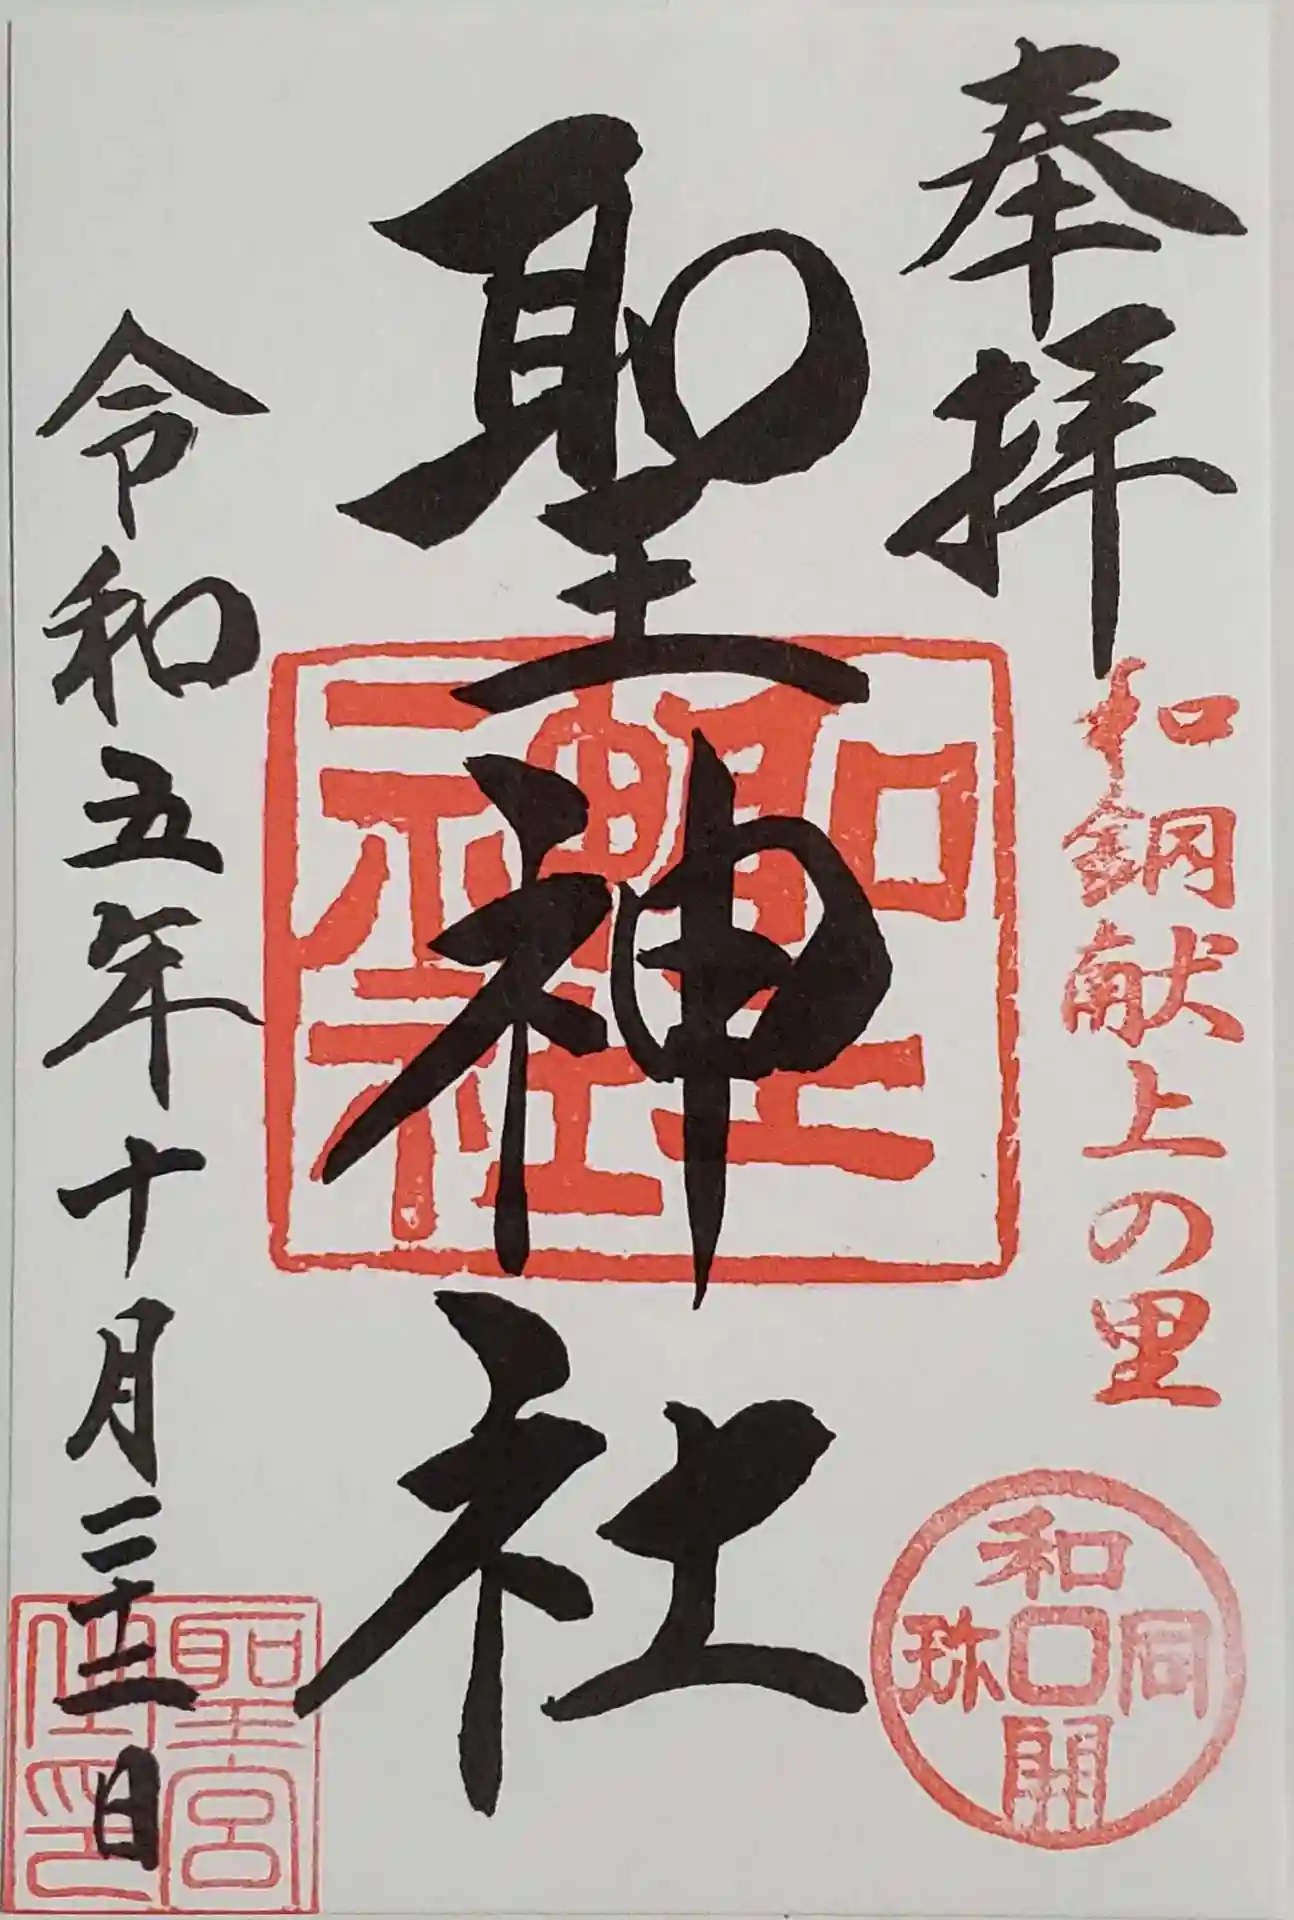 奉拝
和銅献上の里
和同開珎
聖神社
聖神社
令和五年十月二十二日
聖宮
印